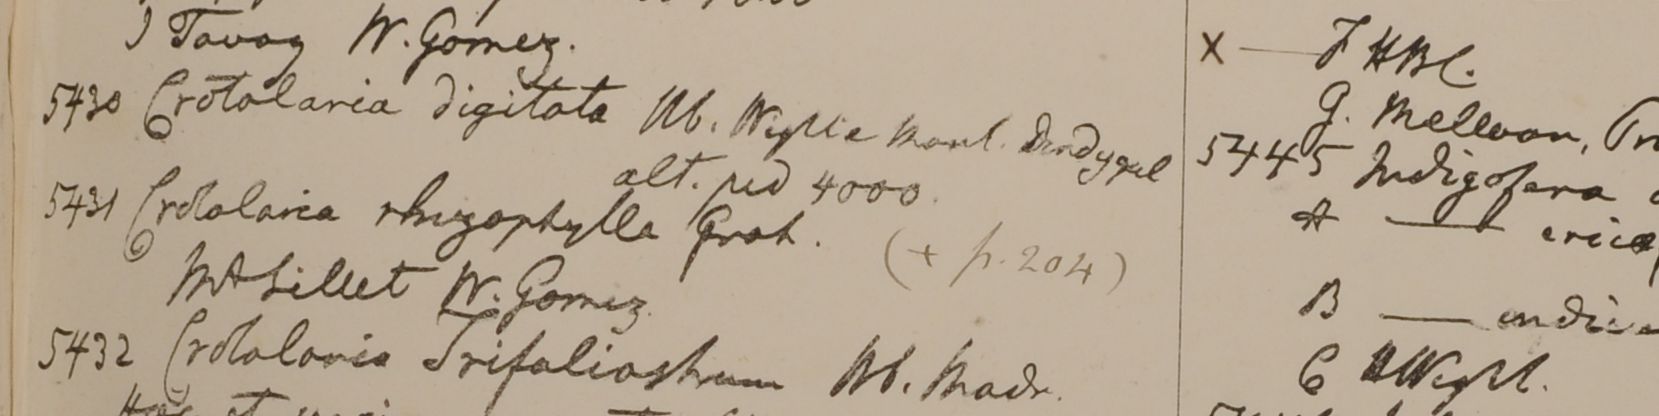 Tavoy W. Gomez.
5430 Crotalaria digitata Hb. Wight Mont. Dindygul
alt. ped 4000.
5431 Crotalaria rhizophylla Grah. (+ p. 204)
Mt Sillet W. Gomez
5432 Crotalaria Trifoliastrum Hb. Madr.
X — HBC.
G.
5445 Indigofera
A —
B — indica
C HWight.